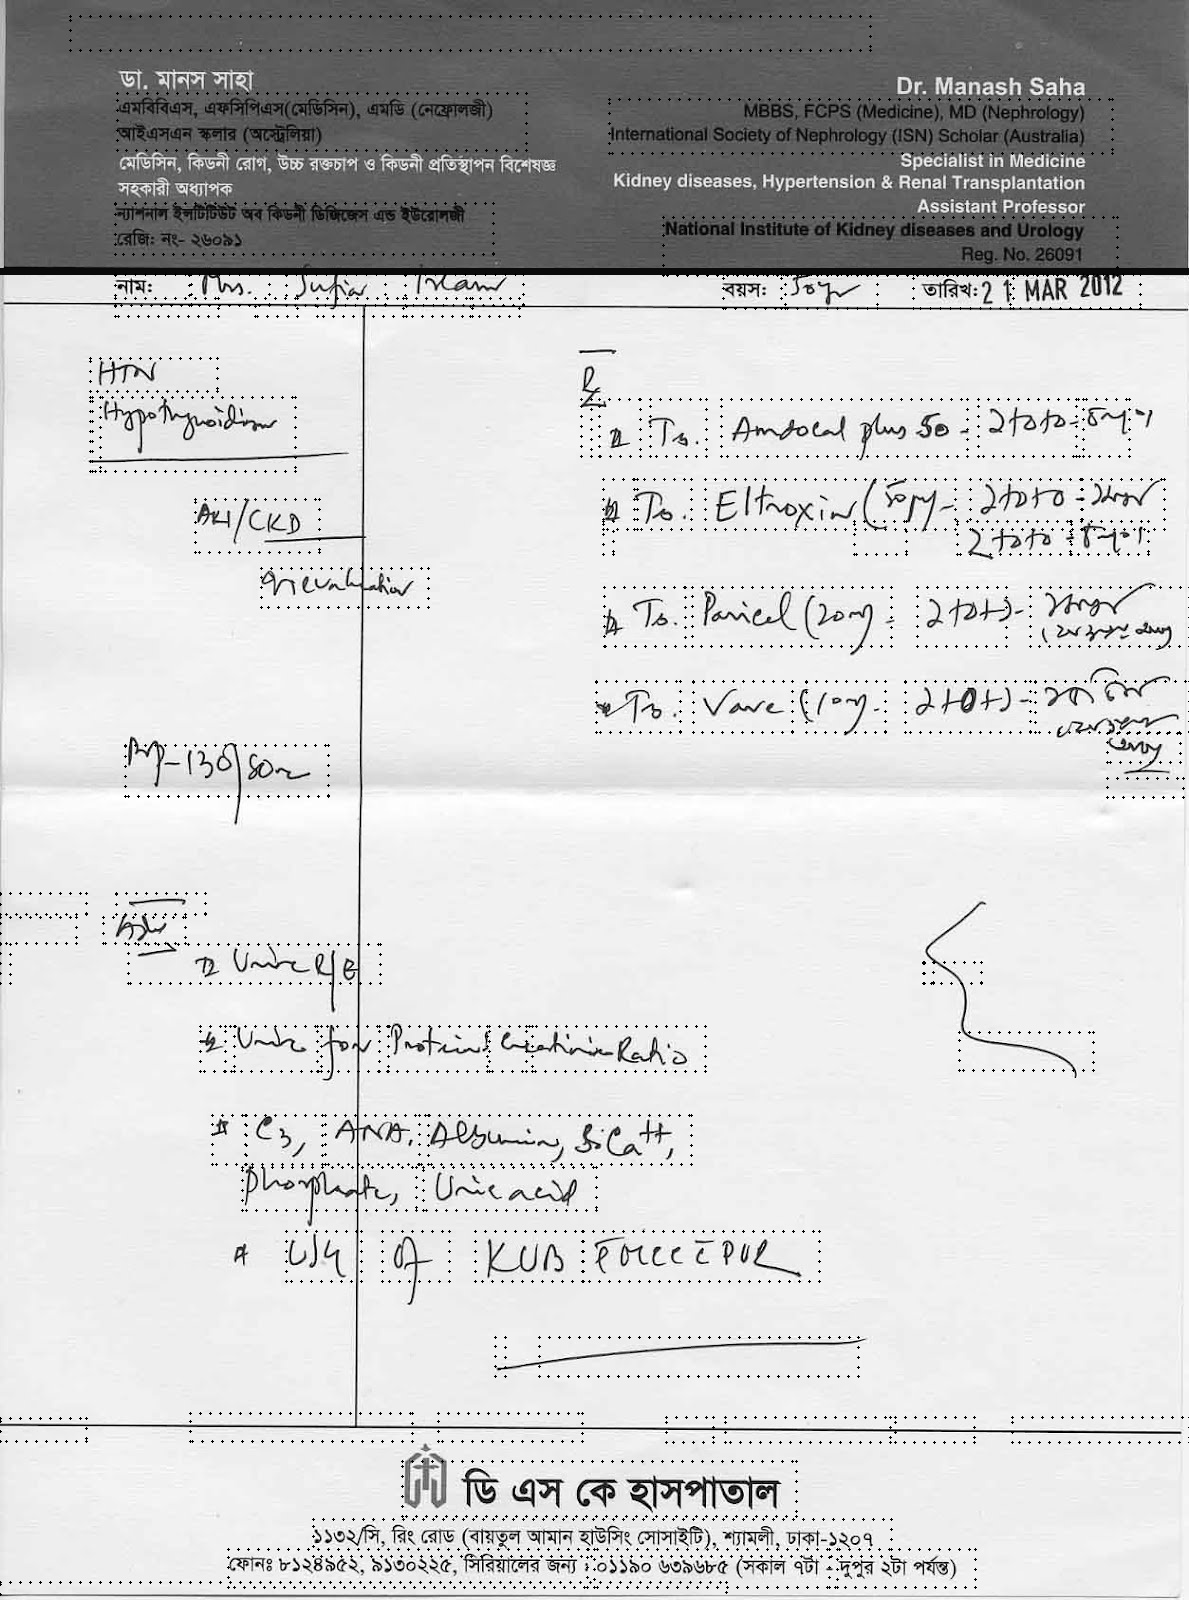 ডা. মানস সাহা
এমবিবিএস, এফসিপিএস(মেডিসিন), এমডি (নেফ্রোলজী)
আইএসএন স্কলার (অস্ট্রেলিয়া)
মেডিসিন, কিডনী রোগ, উচ্চ রক্তচাপ ও কিডনী প্রতিস্থাপন বিশেষজ্ঞ
সহকারী অধ্যাপক
ন্যাশনাল ইনস্টিটিউট অব কিডনী ডিজিজেস এন্ড ইউরোলজী
রেজি: নং- ২৬০৯১
Dr. Manash Saha
MBBS, FCPS (Medicine), MD (Nephrology)
International Society of Nephrology (ISN) Scholar (Australia)
Specialist in Medicine
Kidney diseases, Hypertension & Renal Transplantation
Assistant Professor
National Institute of Kidney diseases and Urology
Reg. No. 26091
নাম: Mrs. Sufia Islam বয়স: তারিখ: 21 MAR 2012
HTN
Hypothyroidism
AKI/CKD
BP-130/80
Rx
Amdocal plus 50 - ১+০+০-
Eltroxin (50 - ১+০+০ - সকাল
১+০+০ -
Paricel (20 - ১+০+১ - সকাল
Vave (10 - ১+০+১ -
Adv
Urine R/E
Urine for Protein Creatinine Ratio
C3, ANA, Albumin, S. Ca++,
phosphate, Uric acid
USG of KUB
ডি এস কে হাসপাতাল
১১৩২/সি, রিং রোড (বায়তুল আমান হাউসিং সোসাইটি), শ্যামলী, ঢাকা-১২০৭
ফোনঃ ৮১২৪৯৫২, ৯১৩০২২৫, সিরিয়ালের জন্য : ০১১৯০ ৬৩৯৬৮৫ (সকাল ৭টা - দুপুর ২টা পর্যন্ত)